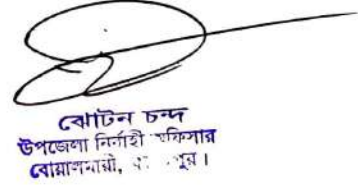 ঝোটন চন্দ
উপজেলা নির্বাহী অফিসার
বোয়ালমারী,